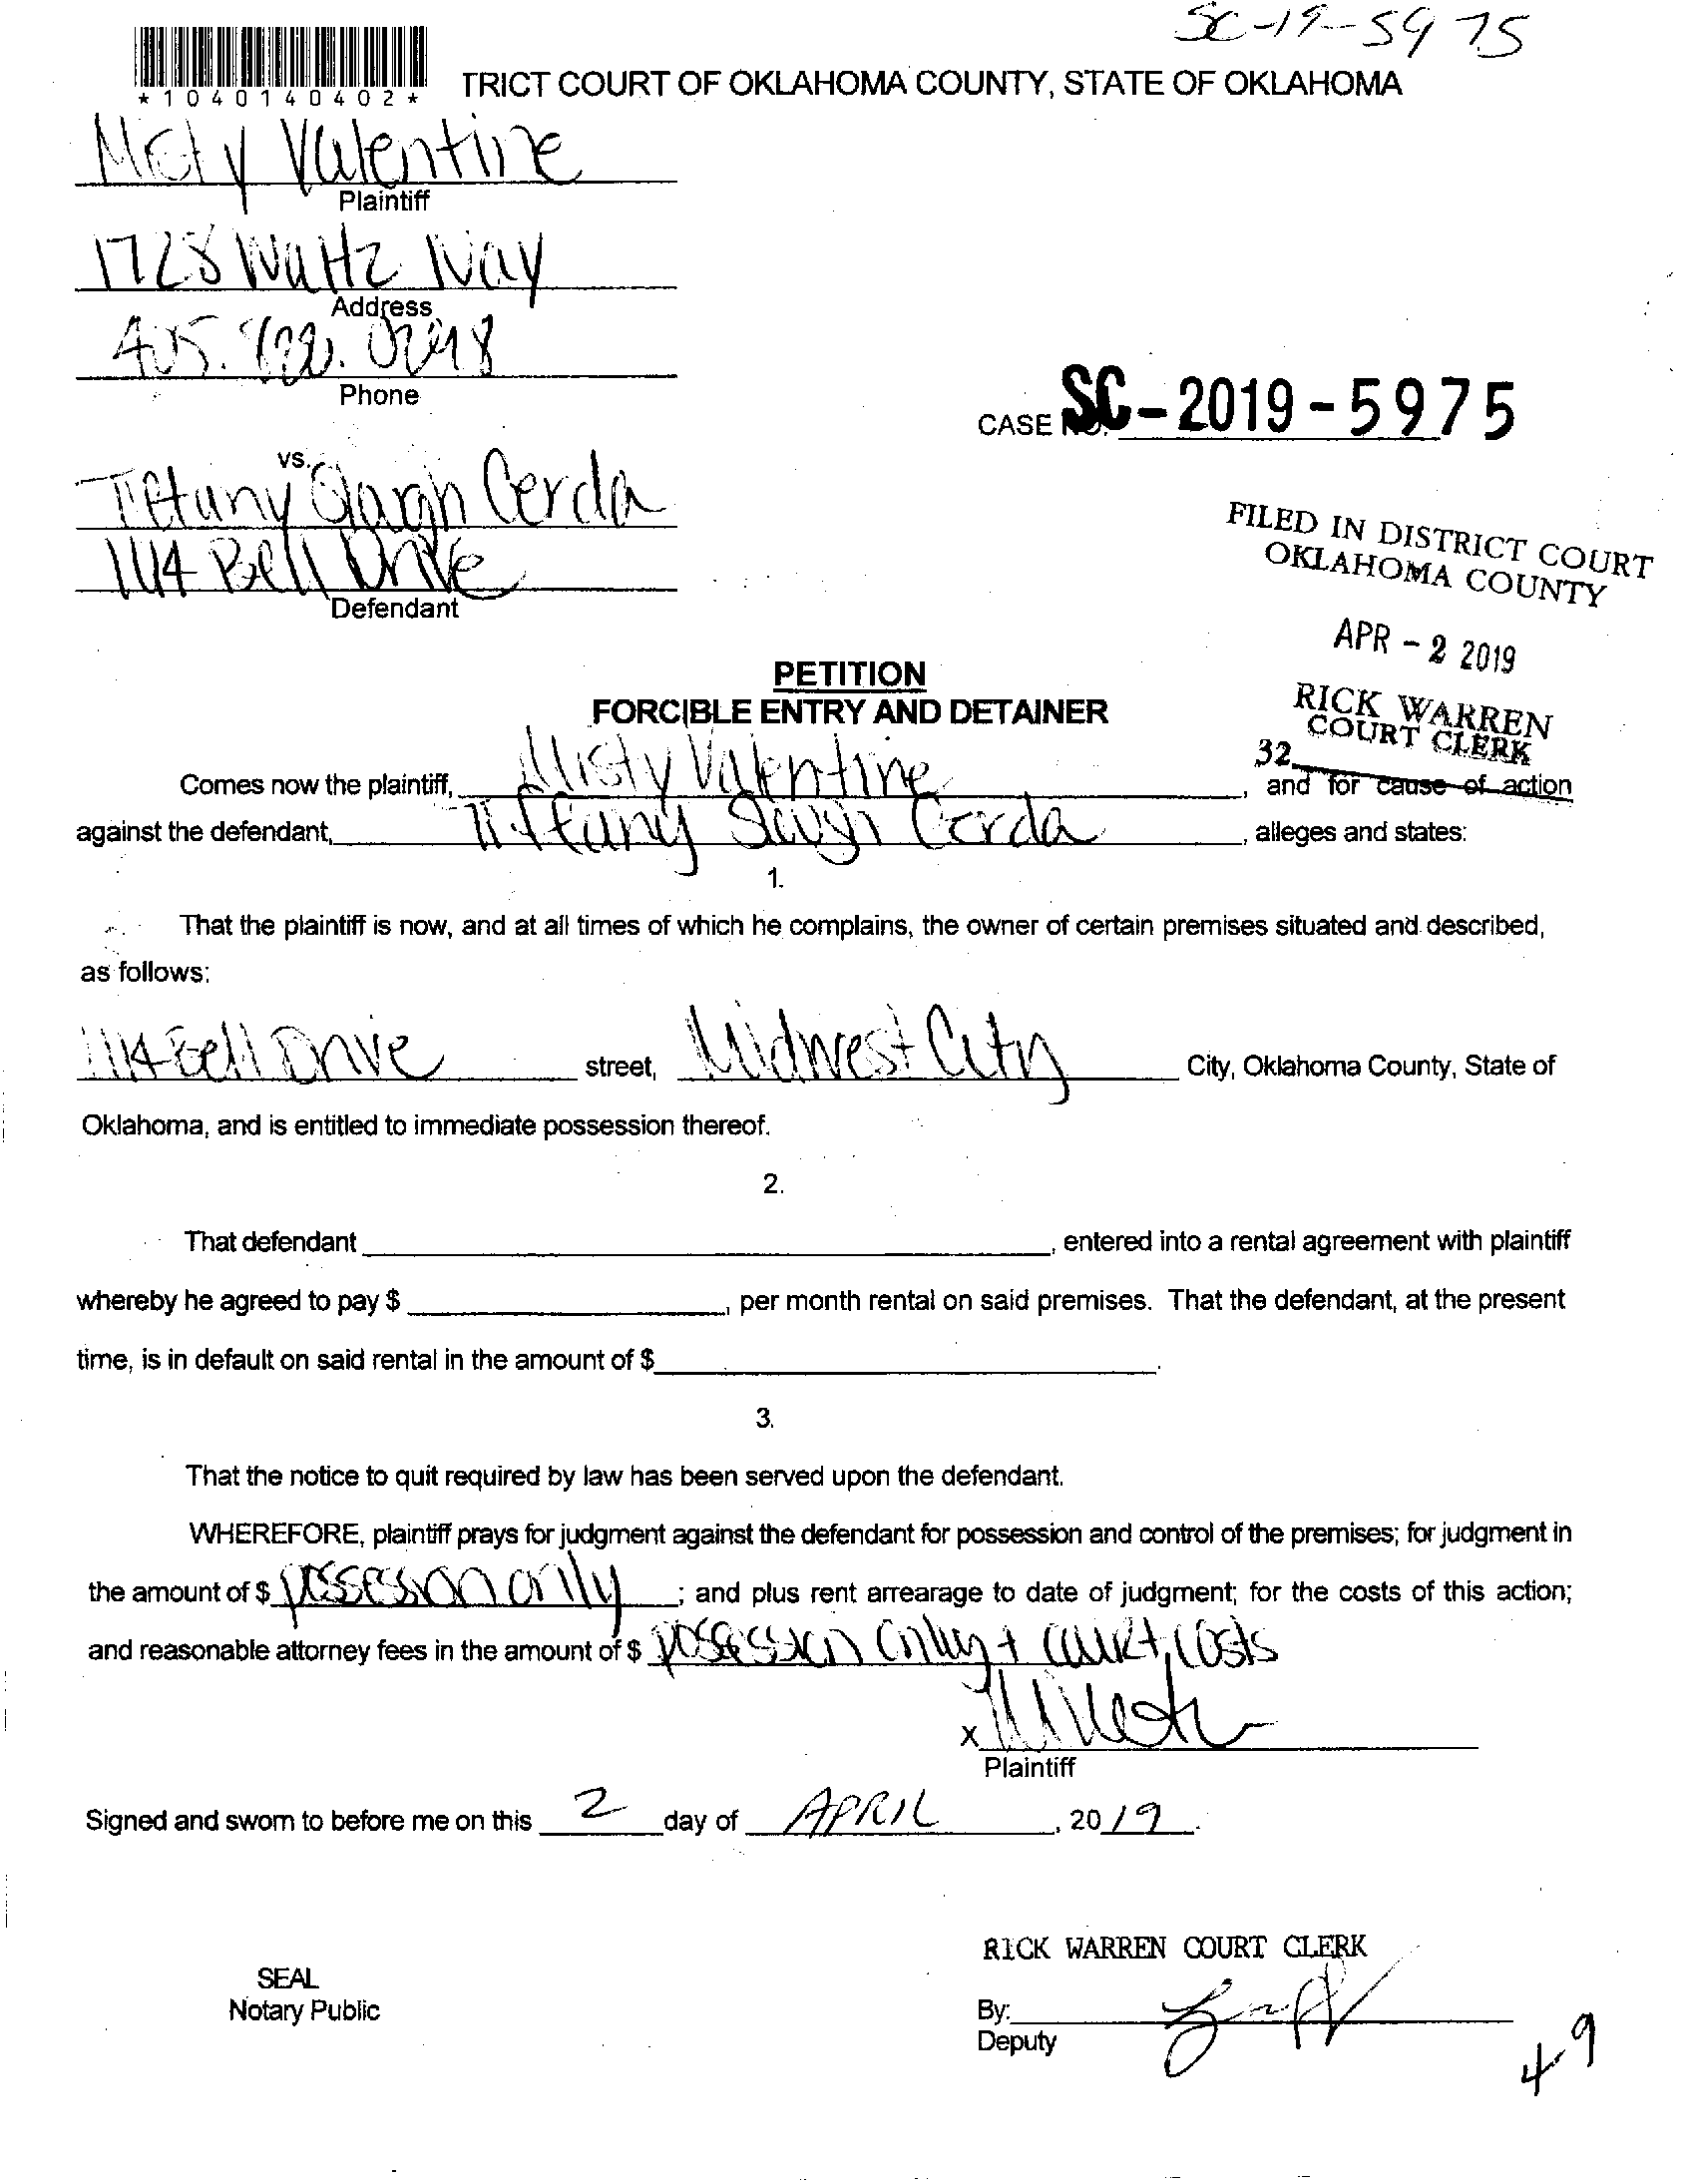 SC-19-5975
*1040140402*
TRICT COURT OF OKLAHOMA COUNTY, STATE OF OKLAHOMA
Misty Valentine
Plaintiff
1728 Waltz Way
Address
405.
Phone
CASE NO. SC-2019-5975
vs.
Tiffany Slaugh Cerda
1114 Bell Drive
Defendant
FILED IN DISTRICT COURT
OKLAHOMA COUNTY
APR - 2 2019
RICK WARREN
COURT CLERK
32
PETITION
FORCIBLE ENTRY AND DETAINER
Comes now the plaintiff, Misty Valentine, and for cause of action
against the defendant, Tiffany Cerda, alleges and states:
1.
That the plaintiff is now, and at all times of which he complains, the owner of certain premises situated and described,
as follows:
1114 Bell Drive street, Midwest City City, Oklahoma County, State of
Oklahoma, and is entitled to immediate possession thereof.
2.
That defendant , entered into a rental agreement with plaintiff
whereby he agreed to pay $ , per month rental on said premises. That the defendant, at the present
time, is in default on said rental in the amount of $ .
3.
That the notice to quit required by law has been served upon the defendant.
WHEREFORE, plaintiff prays for judgment against the defendant for possession and control of the premises; for judgment in
the amount of $ possession only ; and plus rent arrearage to date of judgment; for the costs of this action;
and reasonable attorney fees in the amount of $ possession only + court costs
X
Plaintiff
Signed and sworn to before me on this 2 day of APRIL, 2019.
RICK WARREN COURT CLERK
SEAL
Notary Public
By:
Deputy
4-9